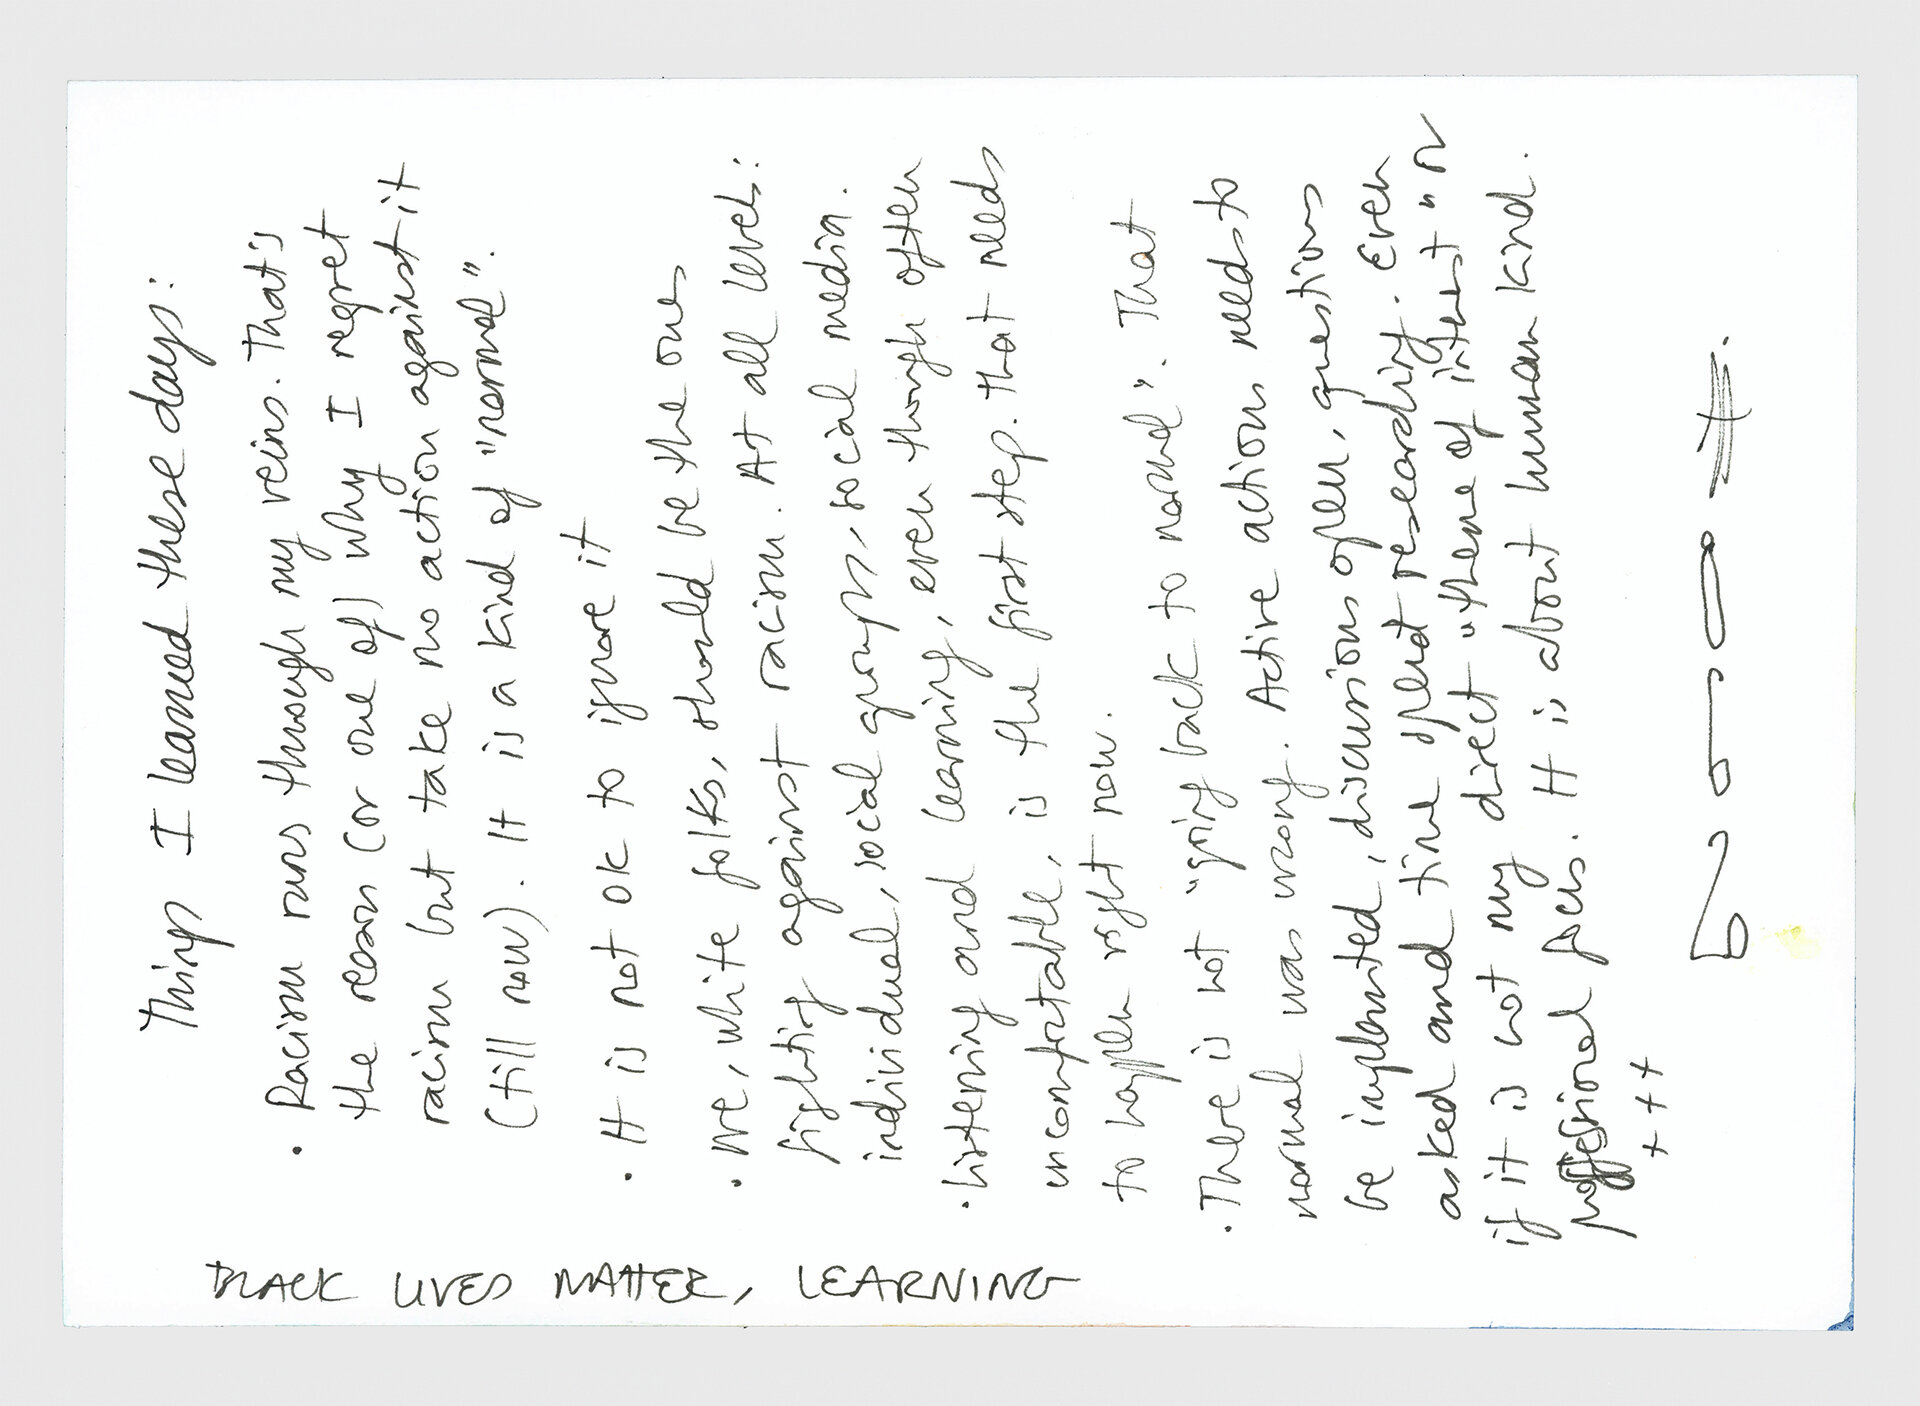 Things I learned these days:
· Racism runs through my veins. That's
the reason (or one of) why I regret
racism but take no action against it
(till now). It is a kind of "normal".
· It is not ok to ignore it
· we, white folks, should be the ones
fighting against racism. At all levels:
individual, social groups, social media.
· listening and learning, even though often
uncomfortable, is the first step. that needs
to happen right now.
· There is not "going back to normal". That
normal was wrong. Active actions needs to
be implemented, discussions open, questions
asked and time spent researching. Even
if it is not my direct "theme of interest" or
professional focus. It is about human kind.
+ + +
BLACK LIVES MATTER, LEARNING